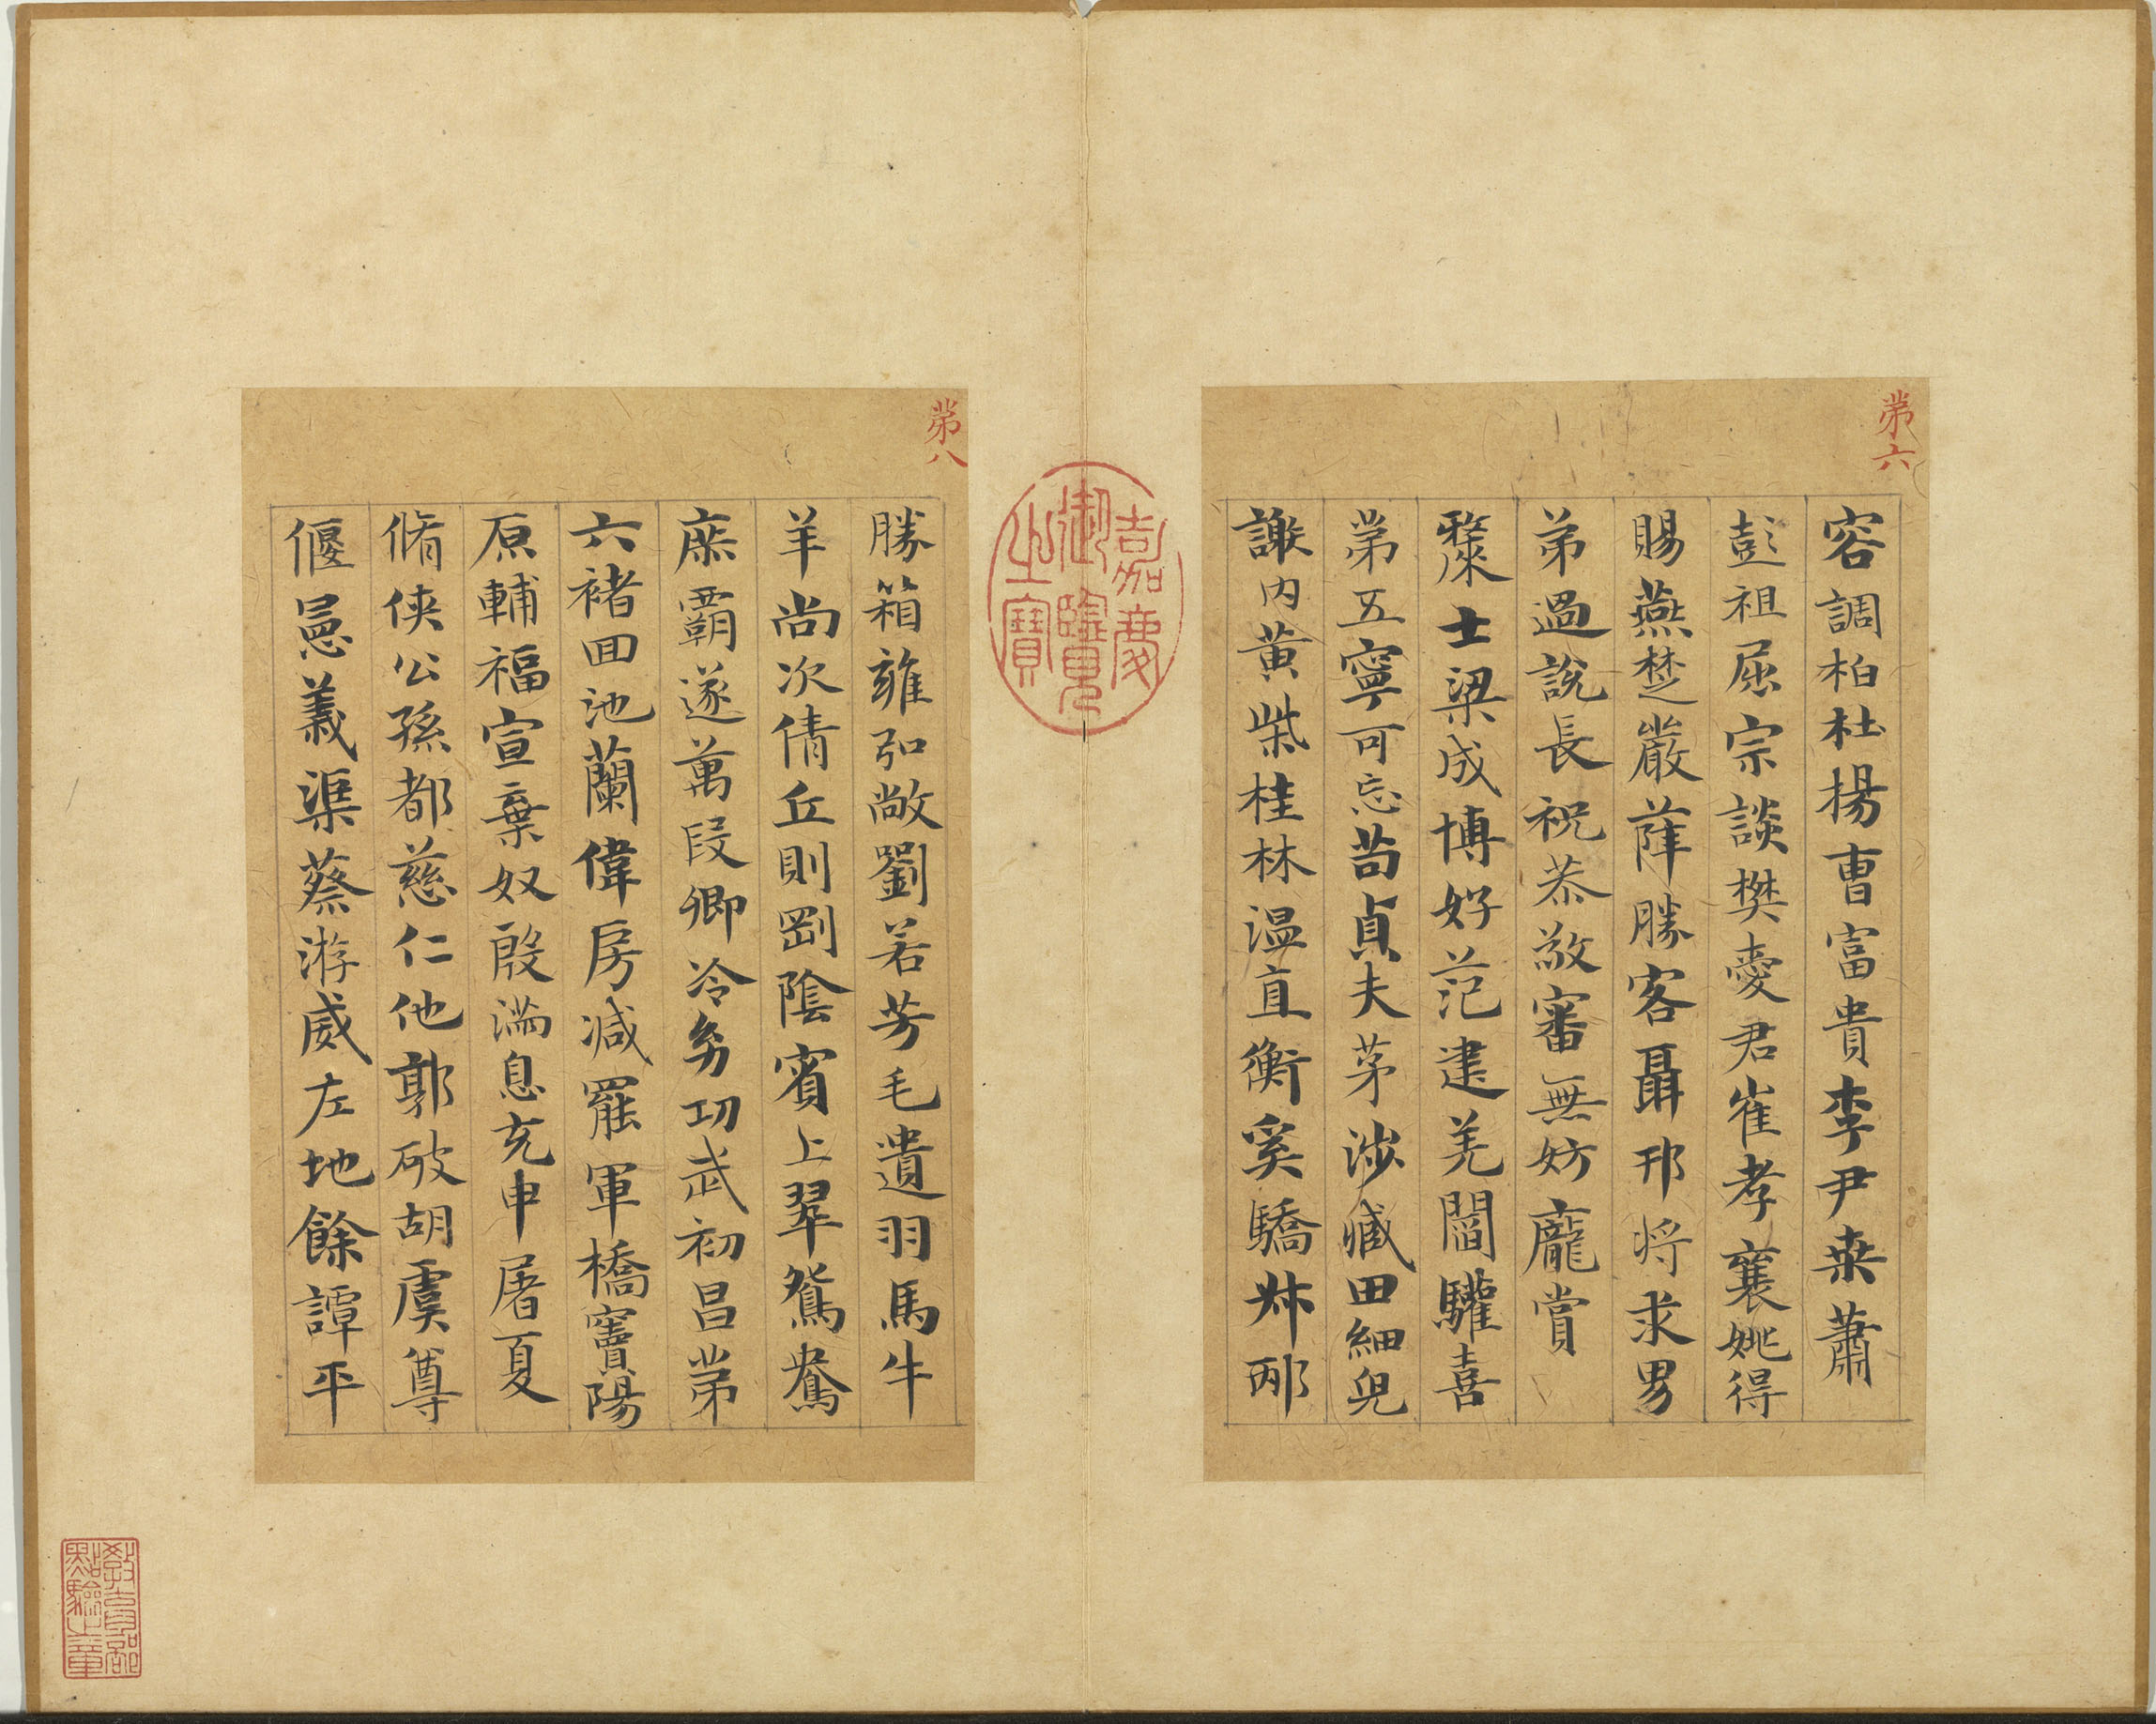 第六
容調柏杜楊曹富貴李尹桒蕭
彭祖屈宗談樊愛君崔孝襄姚得
賜燕楚嚴薛勝客聶邗將求男
弟過說長祝恭敬審無妨龐賞
士梁成博好范建羌閻驩喜
第五寧可忘苟貞夫茅涉臧田細皃
謝內黃柴桂林溫直衡奚驕邴
嘉慶御覽之寶
第八
勝箱雍弘敞劉若芳毛遺羽馬牛
羊尚次倩丘則剛陰賓上翠鴛鴦
庶霸遂萬段卿冷功武初昌第
六褚回池蘭偉房減罷軍橋竇陽
原輔福宣棄奴殷滿息充申屠夏
脩俠公孫都慈仁他郭破胡虞尊
偃義渠蔡游威左地餘譚平
教育部點驗之章